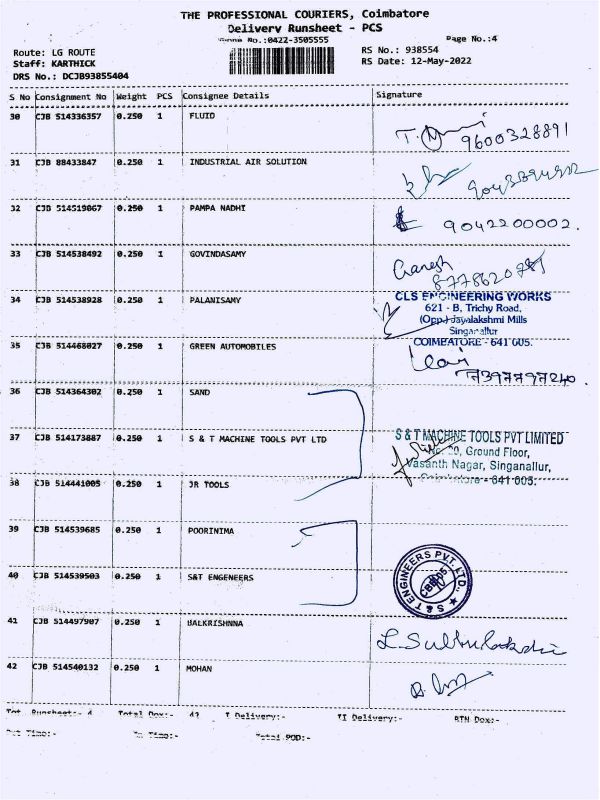 THE PROFESSIONAL COURIERS, Coimbatore
Delivery Runsheet - PCS
Phone No.:0422-3505555 Page No.:4
Route: LG ROUTE RS No.: 938554
Staff: KARTHICK RS Date: 12-May-2022
DRS No.: DCJB93855404
S No Consignment No Weight PCS Consignee Details Signature
30 CJB 514336357 0.250 1 FLUID
9600328891
31 CJB 88433847 0.250 1 INDUSTRIAL AIR SOLUTION
32 CJB 514519067 0.250 1 PAMPA NADHI
9042200002.
33 CJB 514538492 0.250 1 GOVINDASAMY
Ganesh
34 CJB 514538928 0.250 1 PALANISAMY
CLS ENGINEERING WORKS
621 - B, Trichy Road,
(Opp.) Jayalakshmi Mills
Singanallur
COIMBATORE - 641 005.
35 CJB 514468027 0.250 1 GREEN AUTOMOBILES
7397797240.
36 CJB 514364302 0.250 1 SAND
37 CJB 514173887 0.250 1 S & T MACHINE TOOLS PVT LTD
S & T MACHINE TOOLS PVT LIMITED
Ground Floor,
Vasanth Nagar, Singanallur,
Coimbatore - 641 005.
38 CJB 514441005 0.250 1 JR TOOLS
39 CJB 514539685 0.250 1 POORINIMA
40 CJB 514539503 0.250 1 S&T ENGENEERS
S & T ENGINEERS PVT. LTD.,
41 CJB 514497907 0.250 1 BALKRISHNNA
42 CJB 514540132 0.250 1 MOHAN
Tot. Runsheet:- 4 Total Dox:- 42 I Delivery:- II Delivery:- RTN Dox:-
Out Time:- In Time:- Total POD:-